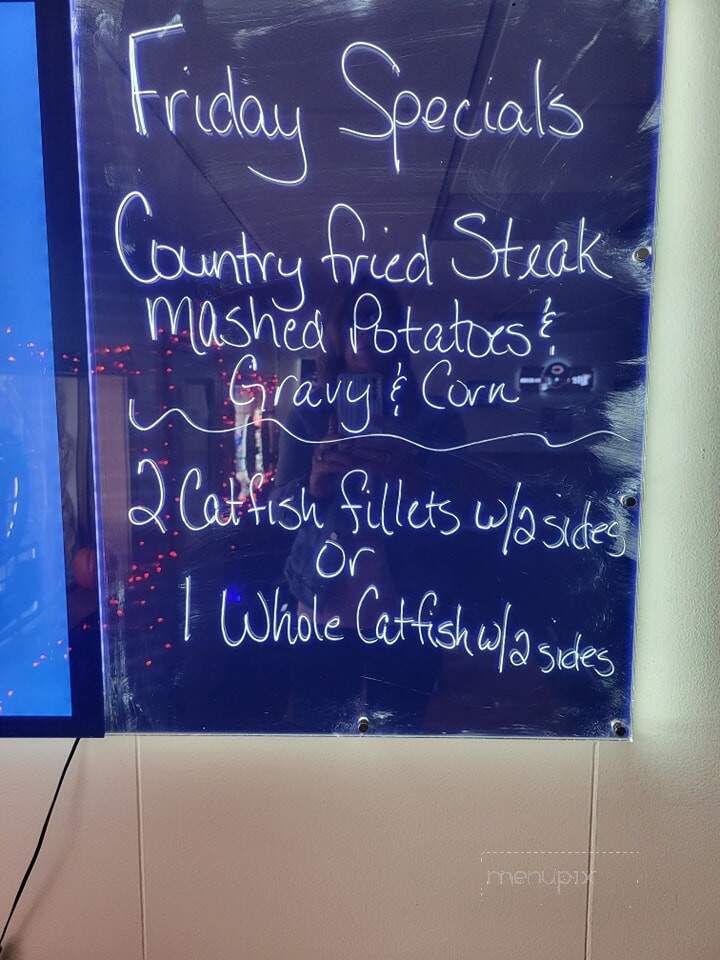 Friday Specials
Country fried Steak
Mashed Potatoes &
Gravy & Corn
2 Catfish fillets w/2 sides
or
1 Whole Catfish w/2 sides
menupix